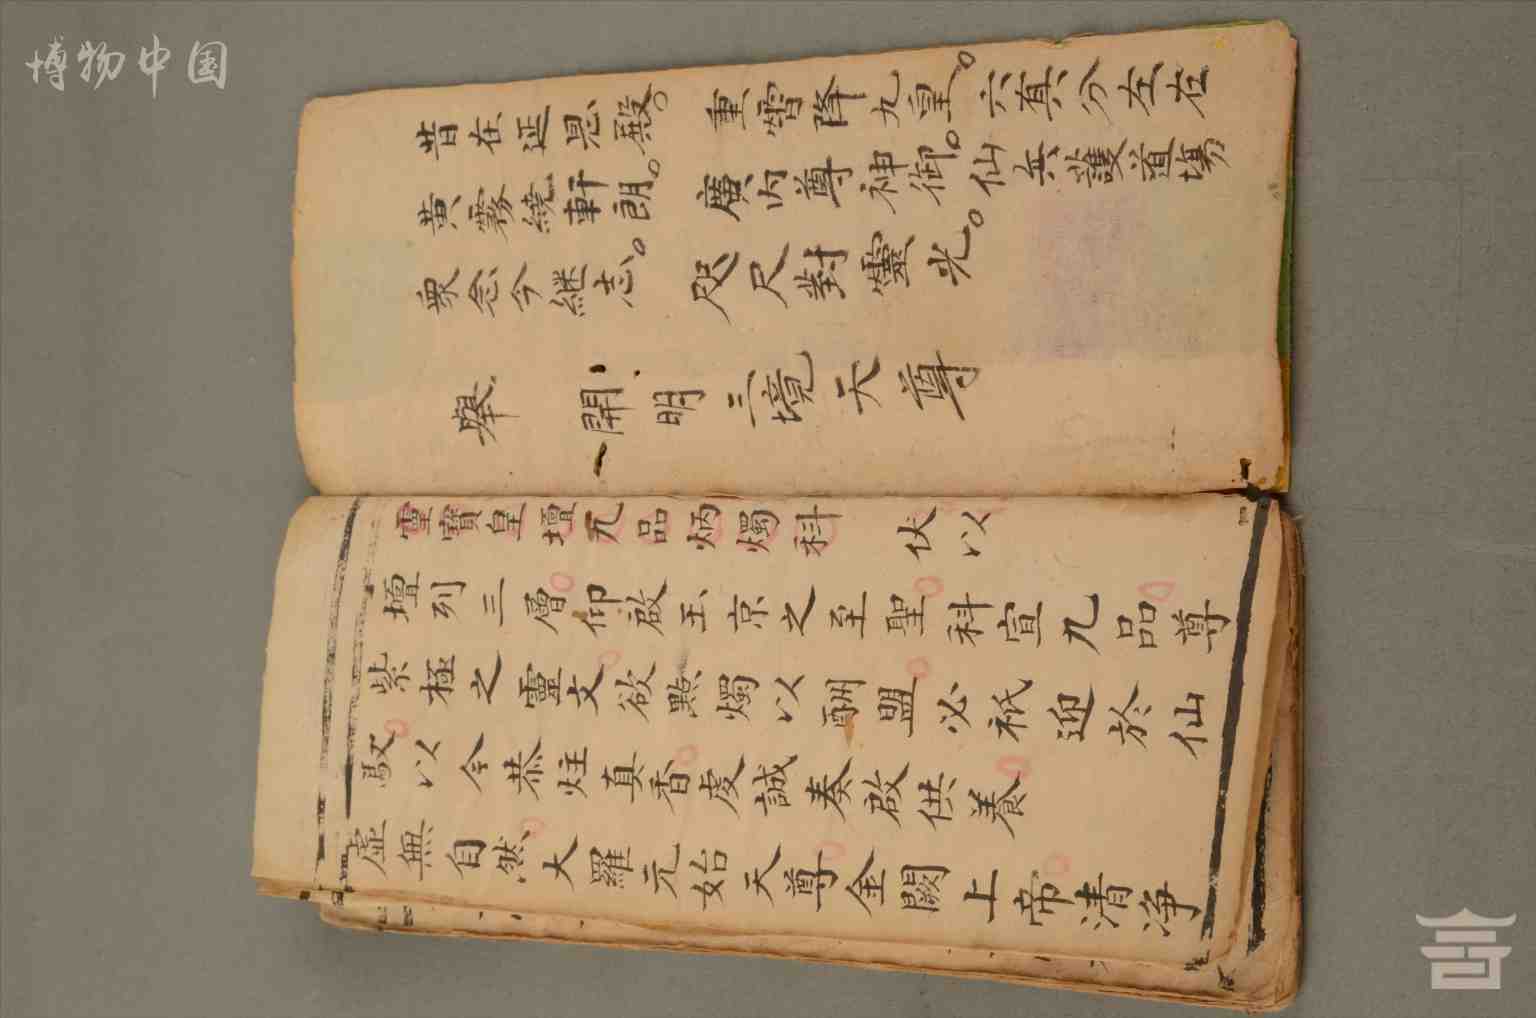 博物中国
昔在延恩殿。重霄降九皇。六真分左右
黄霧繞軒朗。廣内尊神御。仙兵護道塲
衆念今継志。咫尺對靈光。
舉 開明三境天尊
靈寶皇壇九品炳燭科 伏以
壇列三層仰啟玉京之至聖科宣九品尊
紫極之靈文欲點燭以酬盟必祇迎於仙
馭以今恭炷真香虔誠奏啟供養
虛無自然大羅元始天尊金闕上帝清净